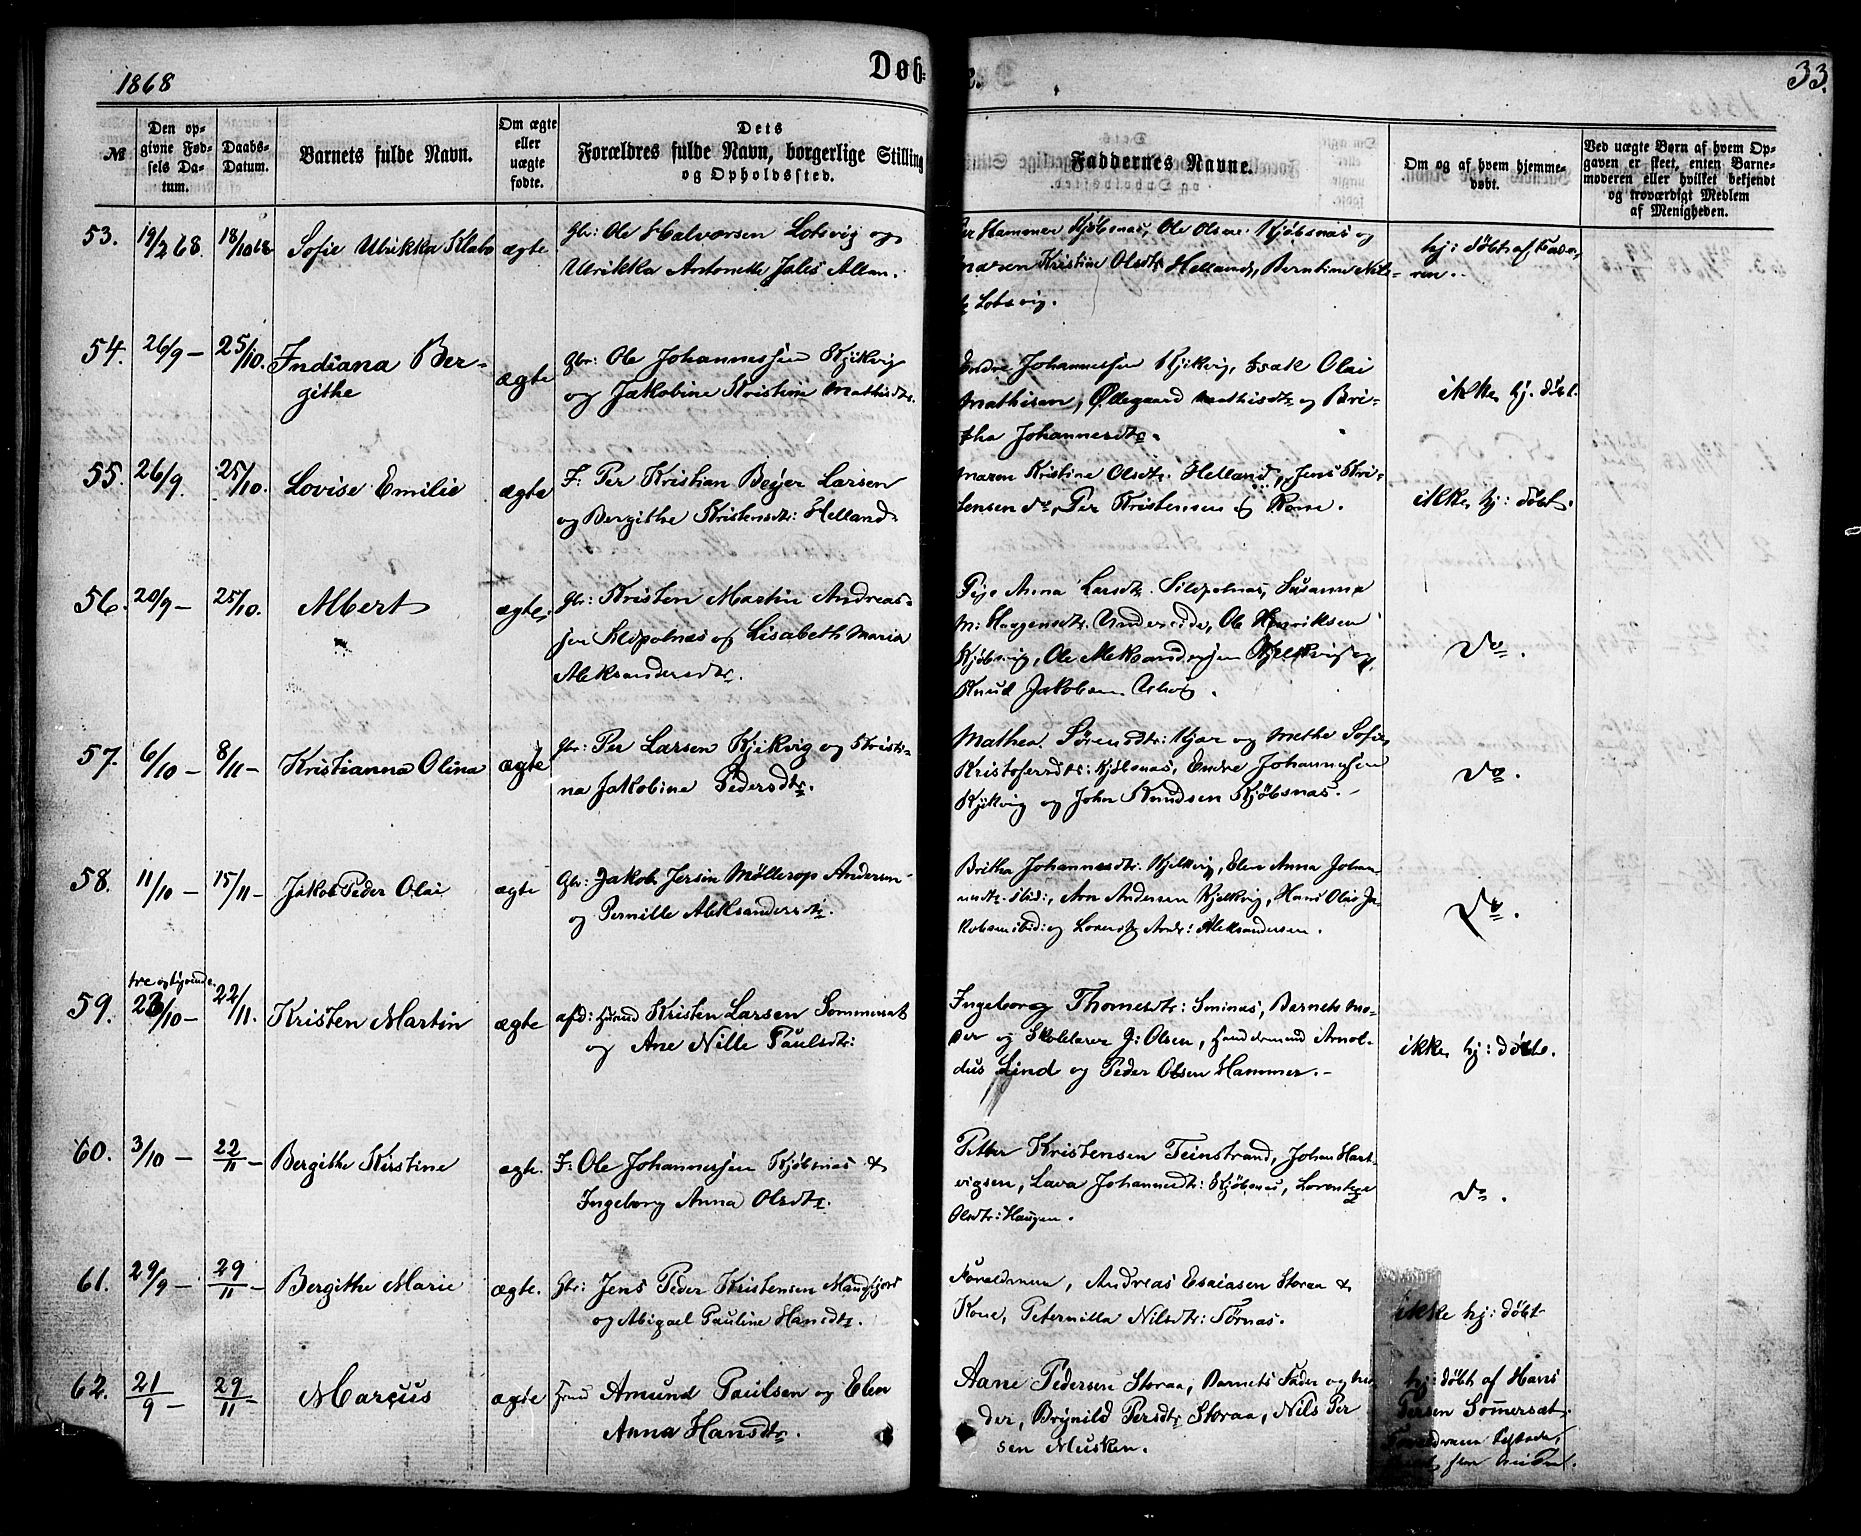 1868
Døb-
33.
№
Den opgivne Fødsels Datum.
Daabs-Datum.
Barnets fulde Navn.
Om ægte eller uægte fødte.
Dets Forældres fulde Navn, borgerlige Stilling og Opholdssted.
Faddernes Navne.
Om og af hvem hjemmedøbt.
Ved uægte Børn af hvem Opgaven er skeet, enten Barnemoderen eller hvilket bekjendt og troværdigt Medlem af Menigheden.
53. 19/2 68. 18/10 68 Sofie Ulrikka ægte Gbr: Ole Halvorsen Lotsvig og
Ulrikka Antonette
Hammer Kjøbsnæs, Ole Olsen Kjøbsnæs og
Maren Kristine Olsdtr Helland, Berntine
Lotsvig.
hj: døbt af
54. 26/9 – 25/10. Indiana Ber-
githe
ægte
Gbr: Ole Johannessen Kjikvig
og Jakobine Kristine Mathisdtr.
Endre Johannessen Kjikvig, Isak Olai
Mathisen, Øllegaard Mathisdtr og Bri-
tha Johannesdtr.
ikke hj. døbt.
55. 26/9. 25/10. Lovise Emilie ægte
F: Per Kristian Beyer Larsen
og Bergithe Kristensdtr: Helland
Maren Kristine Olsdtr. Helland, Jens Kri-
stensen do, Per Kristensen & Kone.
ikke hj: døbt.
56. 20/9 – 25/10. Albert ægte.
Gbr: Kristen Martin Andreas-
sen og Lisabeth Maria
Aleksandersdtr.
Pige Anna Larsdtr. Susanna
M: Haagensdtr. Ole Henriksen
Kjøbsvig, Ole Aleksandersen og
Knud Jakobsen
Do.
57. 6/10 – 8/11 – Kristianna Olina ægte
Gbr: Per Larsen Kjikvig og Kristi-
na Jakobine Pedersdtr.
Mathea Sørensdtr: Kjær og Methe Sofie
Kristofersdtr: Kjøbsnæs, Endre Johannesen
Kjikvig og John Knudsen Kjøbsnæs. –
Do.
58. 11/10 – 15/11 – Jakob Peder Olai ægte
Gbr: Jakob Jersin Møllerop Andersen
og Pernille Aleksandersdtr.
Britha Johannesdtr. Elen Anna Johan-
nesdtr. ibid:, Andersen Hans Olai Ja-
kobsen ibid: og Andr: Aleksandersen.
Do.
59. tre og tyvende
23/10 – 22/11. Kristen Martin ægte
afd: Hmd Kristen Larsen Sommerset
og Ane Nille Paulsdtr:
Ingeborg Thomesdtr: Sminæs, Barnets Mo-
der og Skolelærer J: Olsen, Handelsmand Arnol-
dus Lind og Peder Olsen Hammer. –
ikke hj: døbt.
60. 3/10 – 22/11 – Bergithe Kirstine ægte.
F: Ole Johannessen Kjøbsnæs &
Ingeborg Anna Olsdtr.
Petter Kristensen Teinstrand, Johan Hart-
vigsen, Lava Johannesdtr: Kjøbsnæs, Lorentze
Olsdtr: Haugen.
do.
61. 29/9 – 29/11 – Bergithe Marie ægte.
Gbr: Jens Peder Kristensen Mandfjord
og Abigael Pauline Hansdtr.
Forældrene, Andreas Esaiasen Storaa &
Kone, Peternilla Nilsdtr: Tørnæs.
ikke hj: døbt
62. 21/9 – 29/11 – Marcus ægte
Hmd Amund Paulsen og Elen
Anna Hansdtr.
Aane Pedersen Storaa, Barnets Fader og Mo-
der, Brynild Persdtr Storaa, Nils Per
sen Musken.
hj: døbt af Hans
Persen Sommersæt,
Forældrene